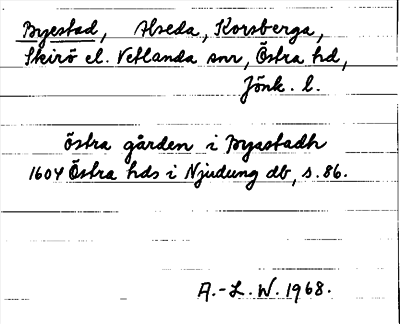 Byestad, Alseda, Korsberga,
Skirö el. Vetlanda snr, Östra hd,
Jönk. l.
östra gården i Byastadh
1604 Östra hds i Njudung db, s. 86.
A.-L. W. 1968.